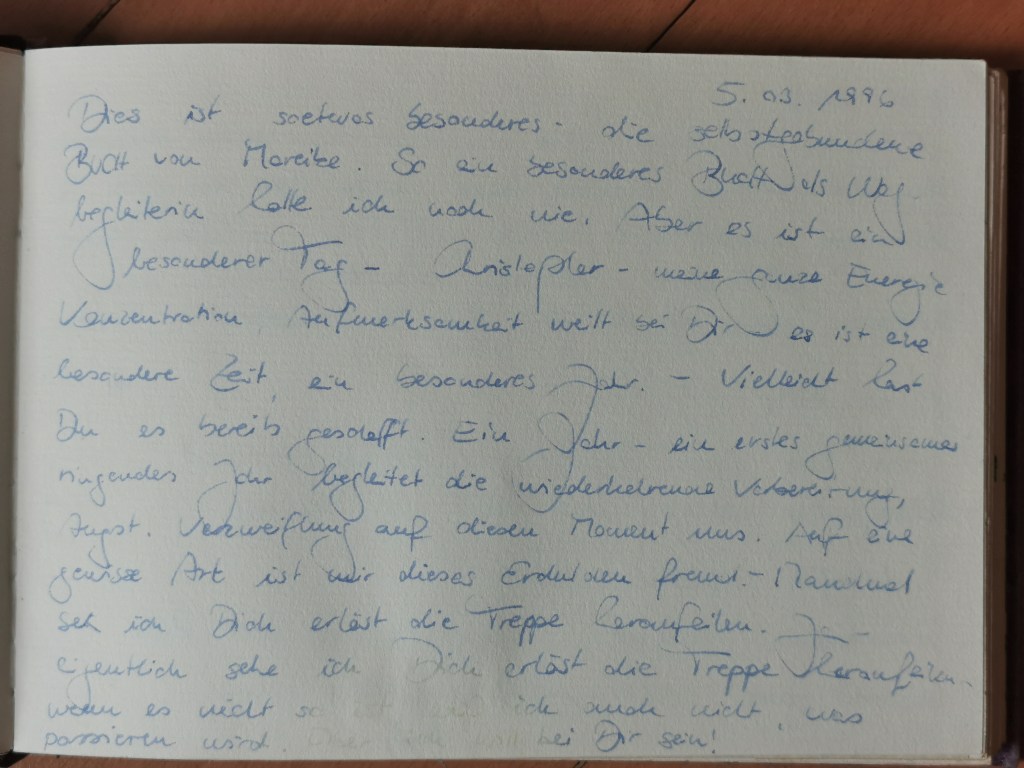 5.03.1996
Dies ist soetwas besonderes - die selbstgebundene
Buch von Mareike. So ein besonderes Buch als Weg-
begleiterin hatte ich noch nie. Aber es ist ein
besonderer Tag - Christopher - meine ganze Energie
Konzentration, Aufmerksamkeit weilt bei Dir es ist eine
besondere Zeit, ein besonderes Jahr. - Vielleicht hast
Du es bereits geschafft. Ein Jahr - ein erstes gemeinsames
ringendes Jahr begleitet die wiederkehrende Vorbereitung,
Angst. Verzweiflung auf diesen Moment uns. Auf eine
gewisse Art ist mir dieses Erdulden fremd. - Manchmal
seh ich Dich erlöst die Treppe heraufeilen.
eigentlich sehe ich Dich erlöst die Treppe heraufeilen -
wenn es nicht so ist ich auch nicht, was
passieren wird. Aber ich will bei Dir sein!